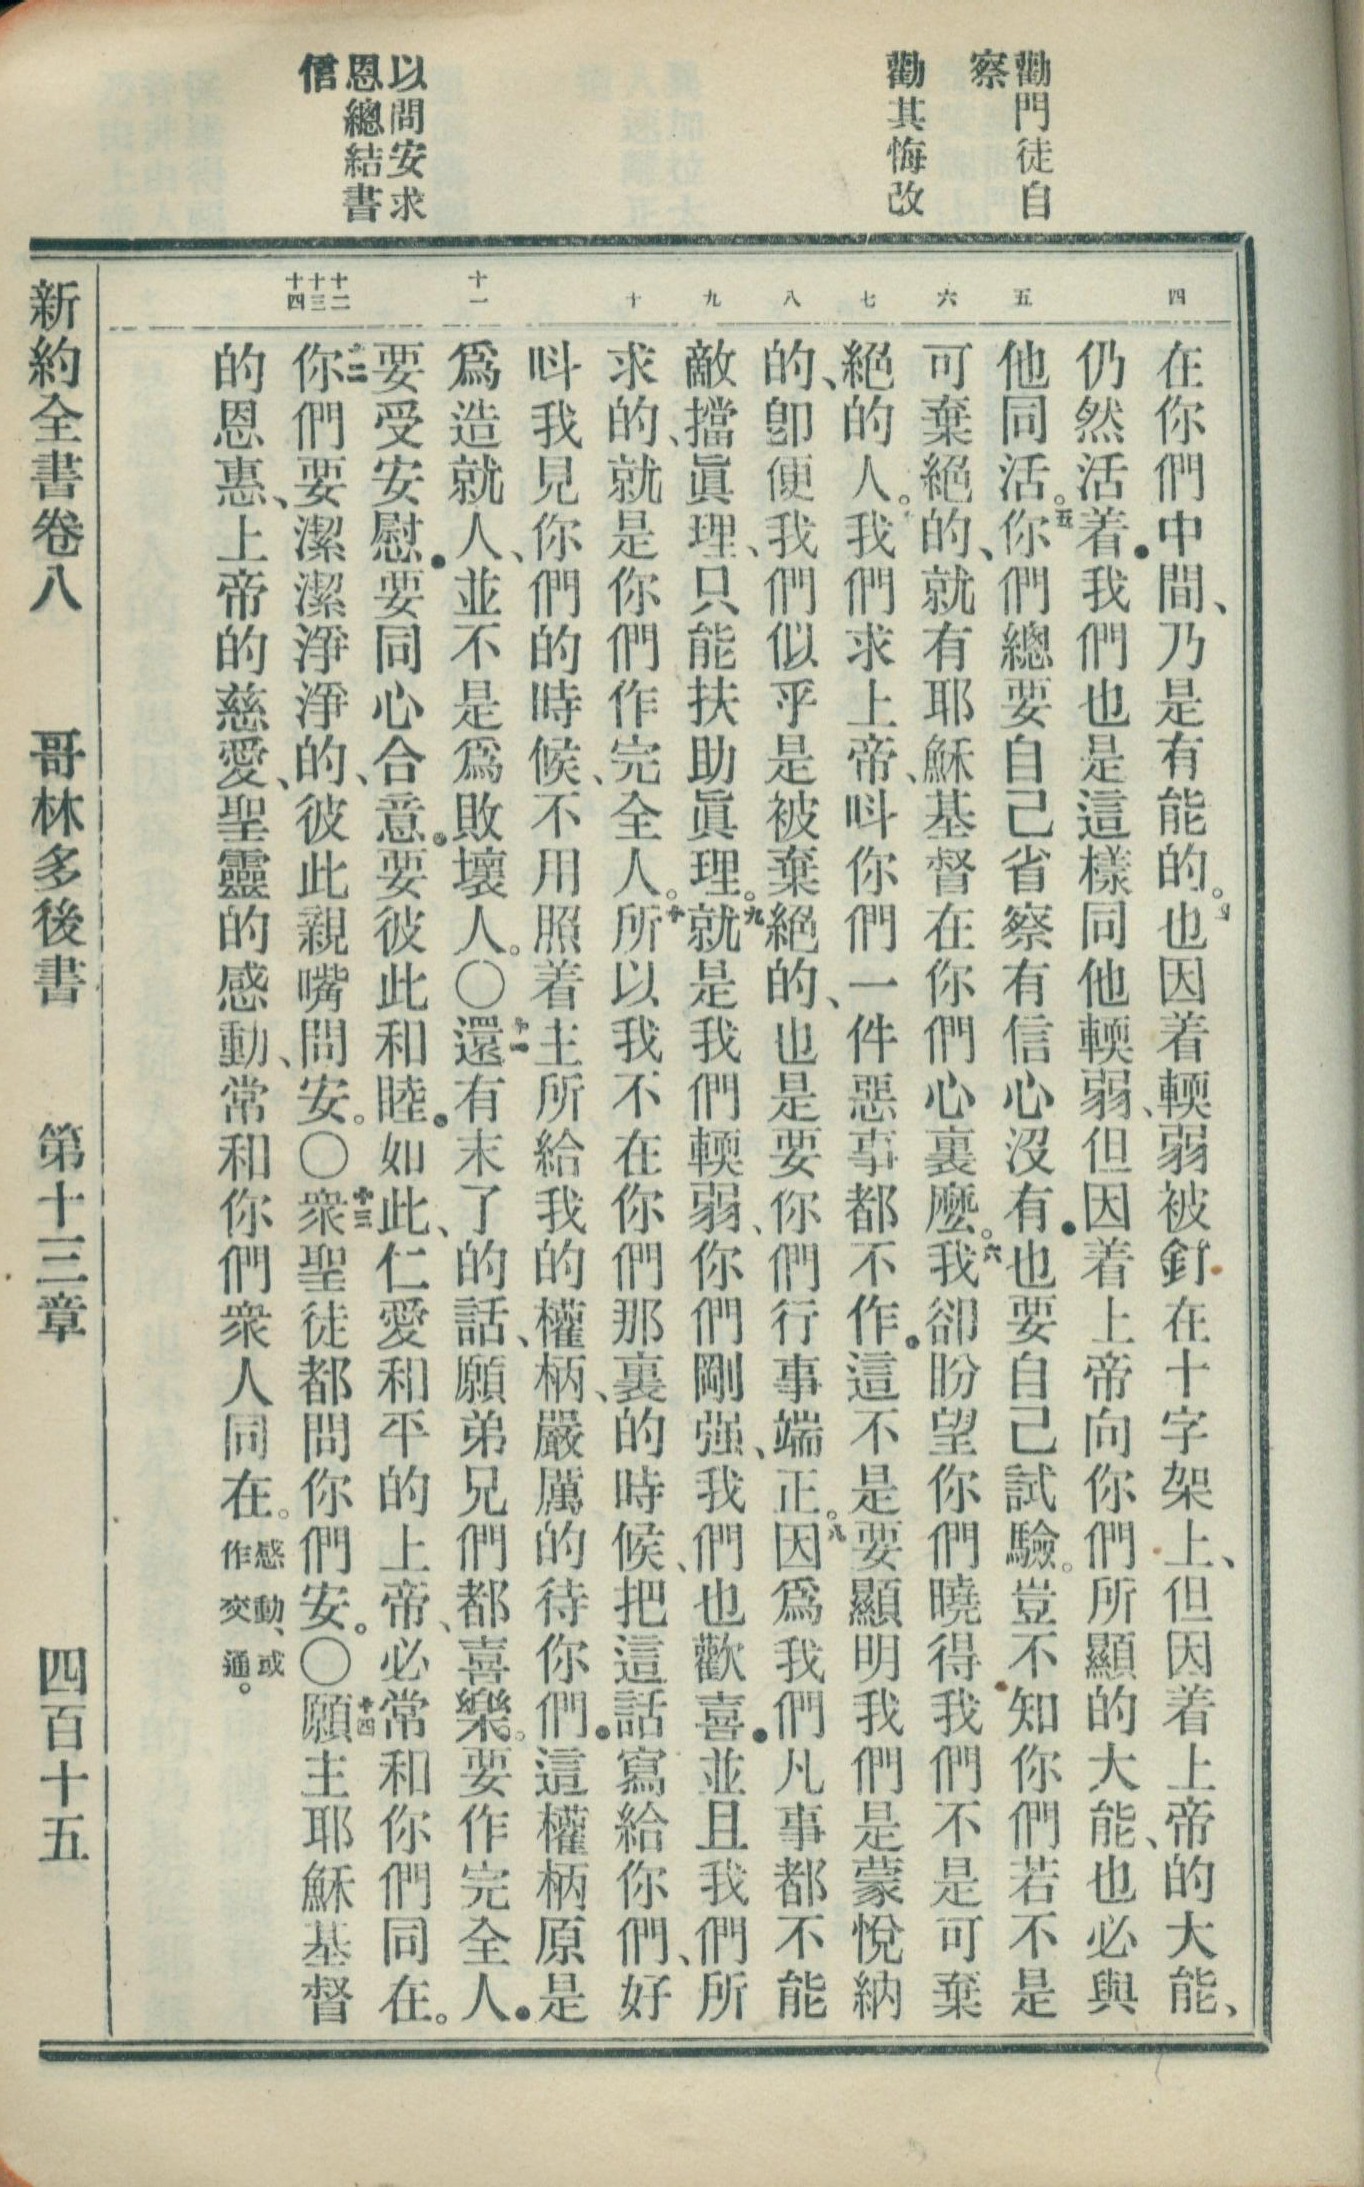 勸門徒自
察
勸其悔改
以問安求
恩總結書
信
四
五
六
七
八
九
十
十一
十二
十三
十四
在你們中間、乃是有能的。四也因着輭弱被釘在十字架上、但因着上帝的大能、
仍然活着．我們也是這樣同他輭弱、但因着上帝向你們所顯的大能、也必與
他同活。五你們總要自己省察有信心沒有．也要自己試驗。豈不知你們若不是
可棄絕的、就有耶穌基督在你們心裏麽。六我卻盼望你們曉得我們不是可棄
絕的人。我們求上帝、呌你們一件惡事都不作．這不是要顯明我們是蒙悅納
的、卽便我們似乎是被棄絕的、也是要你們行事端正。八因爲我們凡事都不能
敵擋眞理、只能扶助眞理。九就是我們輭弱、你們剛强、我們也歡喜．並且我們所
求的、就是你們作完全人。十所以我不在你們那裏的時候、把這話寫給你們、好
呌我見你們的時候、不用照着主所給我的權柄、嚴厲的待你們．這權柄原是
爲造就人、並不是爲敗壞人。〇十一還有末了的話、願弟兄們都喜樂。要作完全人．
要受安慰．要同心合意．要彼此和睦．如此、仁愛和平的上帝、必常和你們同在。
十二你們要潔潔淨淨的、彼此親嘴問安。〇十三衆聖徒都問你們安。〇十四願主耶穌基督
的恩惠、上帝的慈愛、聖靈的感動、常和你們衆人同在。感動、或作交通。
新約全書卷八　哥林多後書　第十三章　四百十五